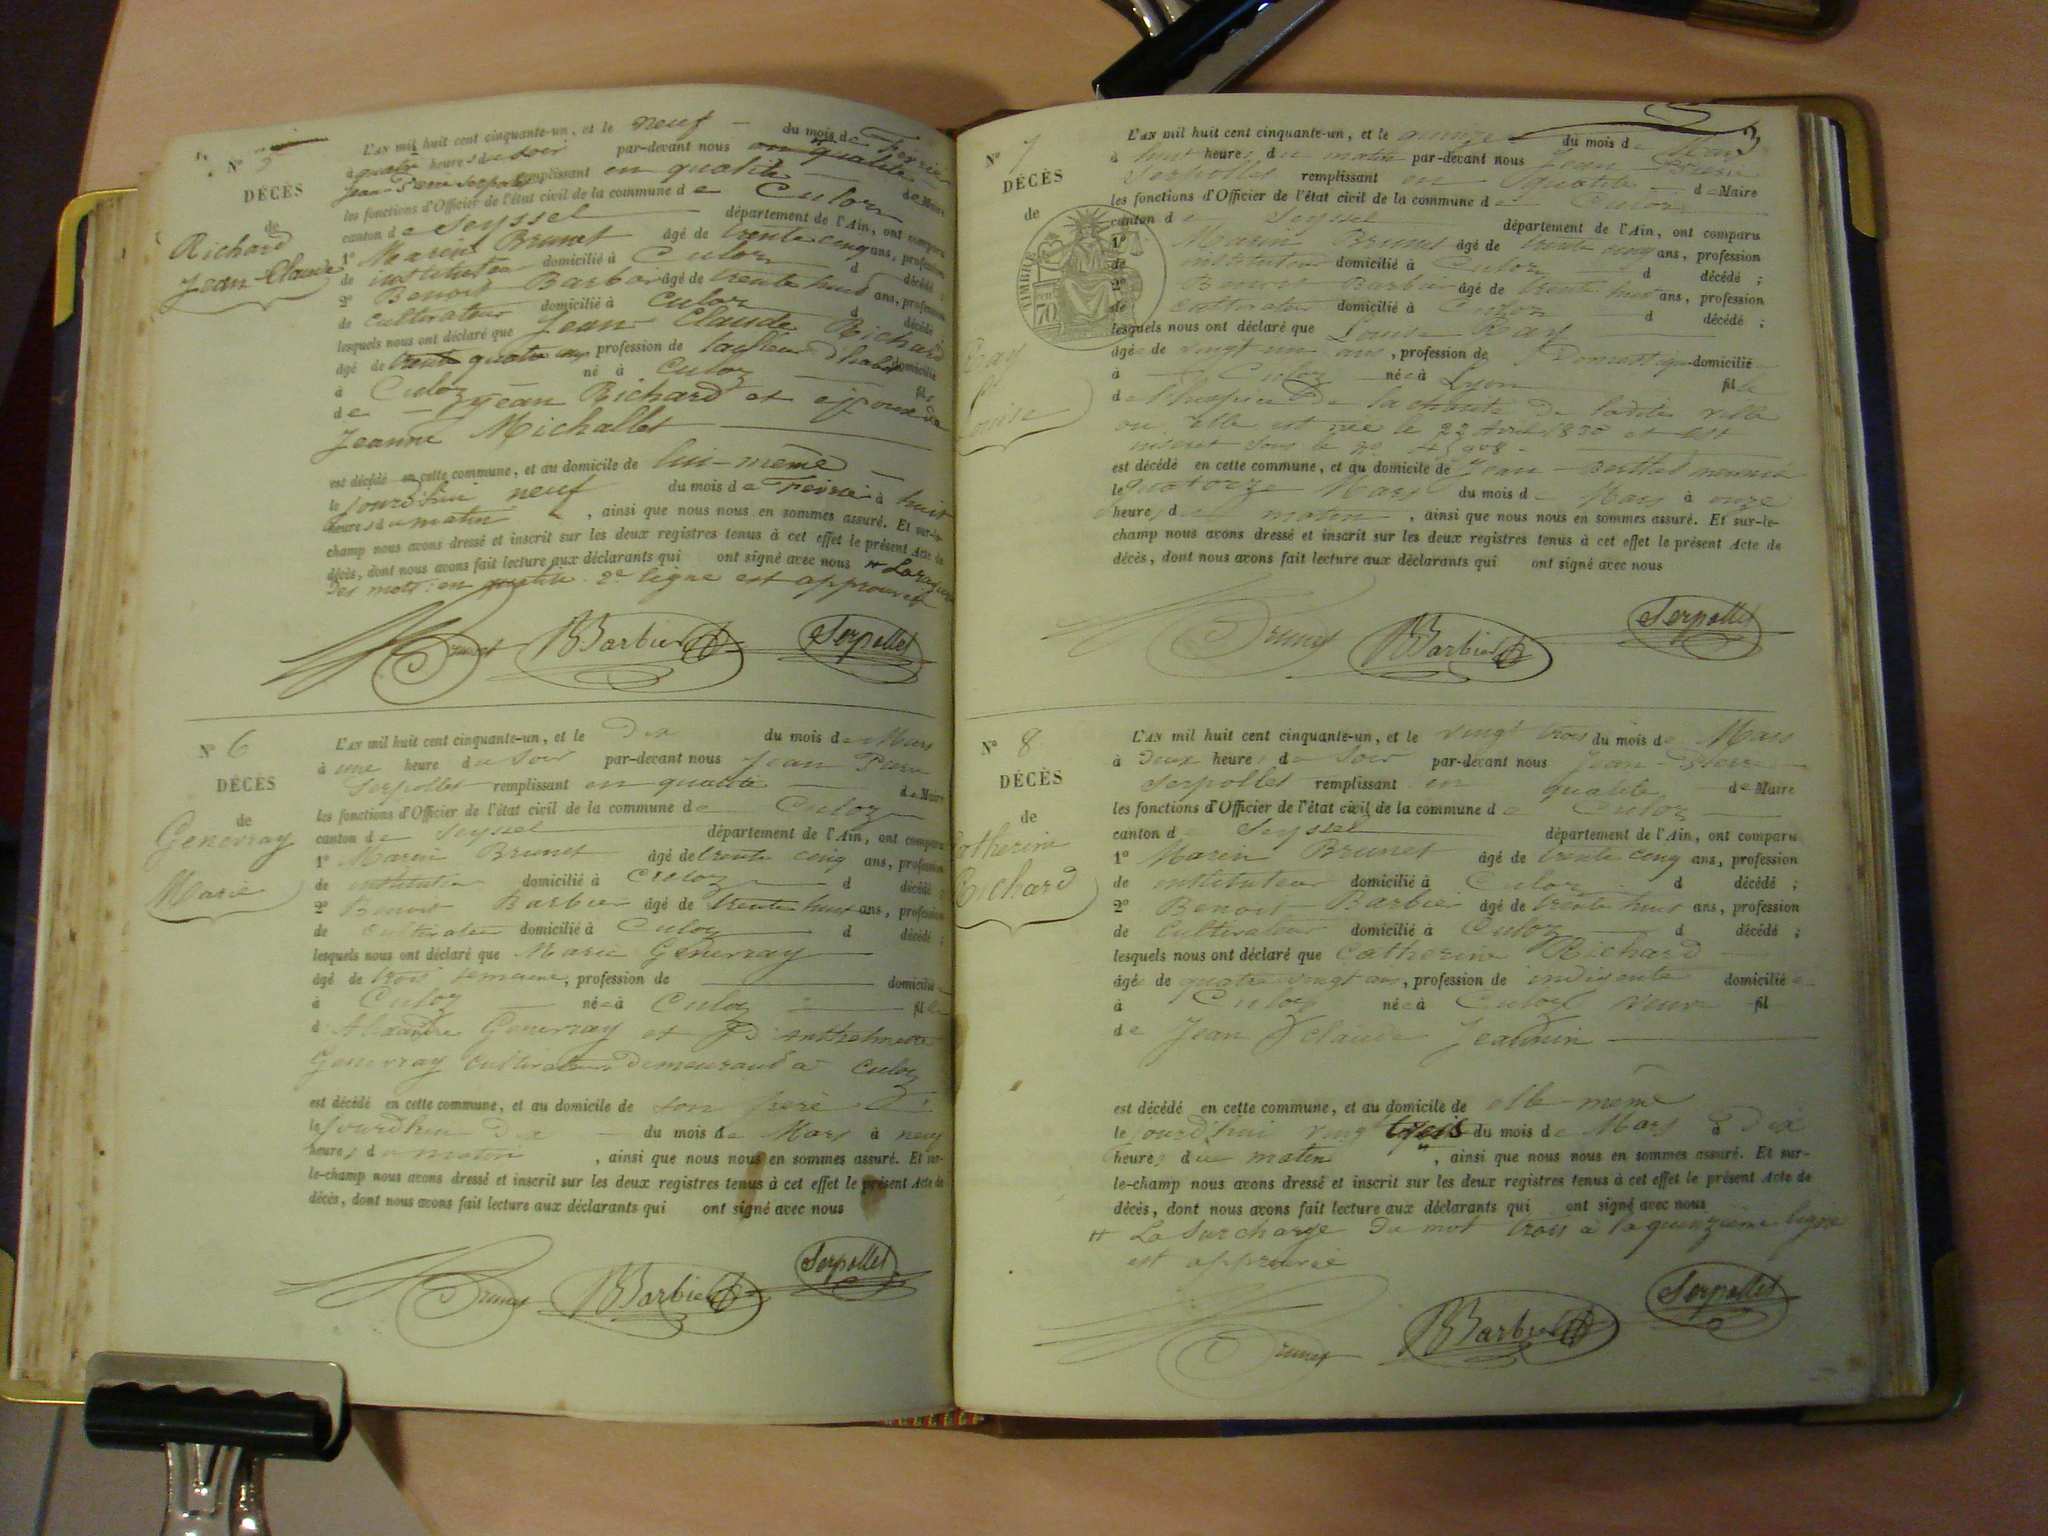 N° 5
DÉCÈS
de
Richard
Jean-Claude
L'AN mil huit cent cinquante-un, et le neuf du mois de Février
à quatre heures du soir par-devant nous en qualité
Jean Pierre Serpollet remplissant en qualité de Maire
les fonctions d'Officier de l'état civil de la commune de Culoz
canton de Seyssel département de l'Ain, ont comparu
1° Marin Brunet âgé de trente cinq ans, profession
de instituteur domicilié à Culoz d décédé ;
2° Benoit Barbier âgé de trente huit ans, profession
de cultivateur domicilié à Culoz d décédé
lesquels nous ont déclaré que Jean Claude Richard
âgé de trente quatre ans profession de tailleur d'habits domicilié
à Culoz né à Culoz fils
de Jean Richard et époux de
Jeanne Michallet
est décédé en cette commune, et au domicile de lui-même
le jourd'hui neuf du mois de Février à huit
heures du matin, ainsi que nous nous en sommes assuré. Et sur-le-
champ nous avons dressé et inscrit sur les deux registres tenus à cet effet le présent Acte de
décès, dont nous avons fait lecture aux déclarants qui ont signé avec nous # La rature
des mots: en qualité 2e ligne est approuvée
Brunet BBarbier Serpollet
N° 6
DÉCÈS
de
Genevray
Marie
L'AN mil huit cent cinquante-un, et le dix du mois de Mars
à une heure du soir par-devant nous Jean Pierre
Serpollet remplissant en qualité de Maire
les fonctions d'Officier de l'état civil de la commune de Culoz
canton de Seyssel département de l'Ain, ont comparu
1° Marin Brunet âgé de trente cinq ans, profession
de instituteur domicilié à Culoz d décédé ;
2° Benoit Barbier âgé de trente huit ans, profession
de cultivateur domicilié à Culoz d décédé ;
lesquels nous ont déclaré que Marie Genevray
âgé de trois semaine, profession de domicilié
à Culoz née à Culoz fille
d'Alexandre Genevray et d'Anthelmette
Genevray cultivateurs demeurant à Culoz
est décédé en cette commune, et au domicile de son père
le jourd'hui dix du mois de Mars à neuf
heures du matin, ainsi que nous nous en sommes assuré. Et sur-
le-champ nous avons dressé et inscrit sur les deux registres tenus à cet effet le présent Acte de
décès, dont nous avons fait lecture aux déclarants qui ont signé avec nous
Brunet BBarbier Serpollet
3
N° 7
DÉCÈS
de
Ray
Louise
TIMBRE
70
L'AN mil huit cent cinquante-un, et le quinze du mois de Mars
à huit heures du matin par-devant nous Jean Pierre
Serpollet remplissant en qualité de Maire
les fonctions d'Officier de l'état civil de la commune de Culoz
canton de Seyssel département de l'Ain, ont comparu
1° Marin Brunet âgé de trente cinq ans, profession
de instituteur domicilié à Culoz d décédé ;
2° Benoit Barbier âgé de trente huit ans, profession
de cultivateur domicilié à Culoz d décédé ;
lesquels nous ont déclaré que Louise Ray
âgée de vingt un ans, profession de Domestique domicilié
à Culoz née à Lyon fille
de l'hospice de la charité de ladite ville
ou Elle est née le 22 Avril 1830 et est
inscrit sous le n°
est décédé en cette commune, et au domicile de Jean Berthet
le quatorze Mars du mois de Mars à onze
heures du matin, ainsi que nous nous en sommes assuré. Et sur-le-
champ nous avons dressé et inscrit sur les deux registres tenus à cet effet le présent Acte de
décès, dont nous avons fait lecture aux déclarants qui ont signé avec nous
Brunet BBarbier Serpollet
N° 8
DÉCÈS
de
Catherine
Richard
L'AN mil huit cent cinquante-un, et le vingt trois du mois de Mars
à deux heures du soir par-devant nous Jean Pierre
Serpollet remplissant en qualité de Maire
les fonctions d'Officier de l'état civil de la commune de Culoz
canton d Seyssel département de l'Ain, ont comparu
1° Marin Brunet âgé de trente cinq ans, profession
de instituteur domicilié à Culoz d décédé ;
2° Benoit Barbier âgé de trente huit ans, profession
de cultivateur domicilié à Culoz d décédé ;
lesquels nous ont déclaré que Catherine Richard
âgée de quatre vingt ans, profession de indigente domiciliée
à Culoz née à Culoz veuve fil
de Jean Claude Jeannin
est décédé en cette commune, et au domicile de elle même
le jourd'hui vingt trois du mois de Mars à dix
heures du matin, ainsi que nous nous en sommes assuré. Et sur-
le-champ nous avons dressé et inscrit sur les deux registres tenus à cet effet le présent Acte de
décès, dont nous avons fait lecture aux déclarants qui ont signé avec nous
# La surcharge du mot trois à la quinzième ligne
est approuvée
Brunet BBarbier Serpollet